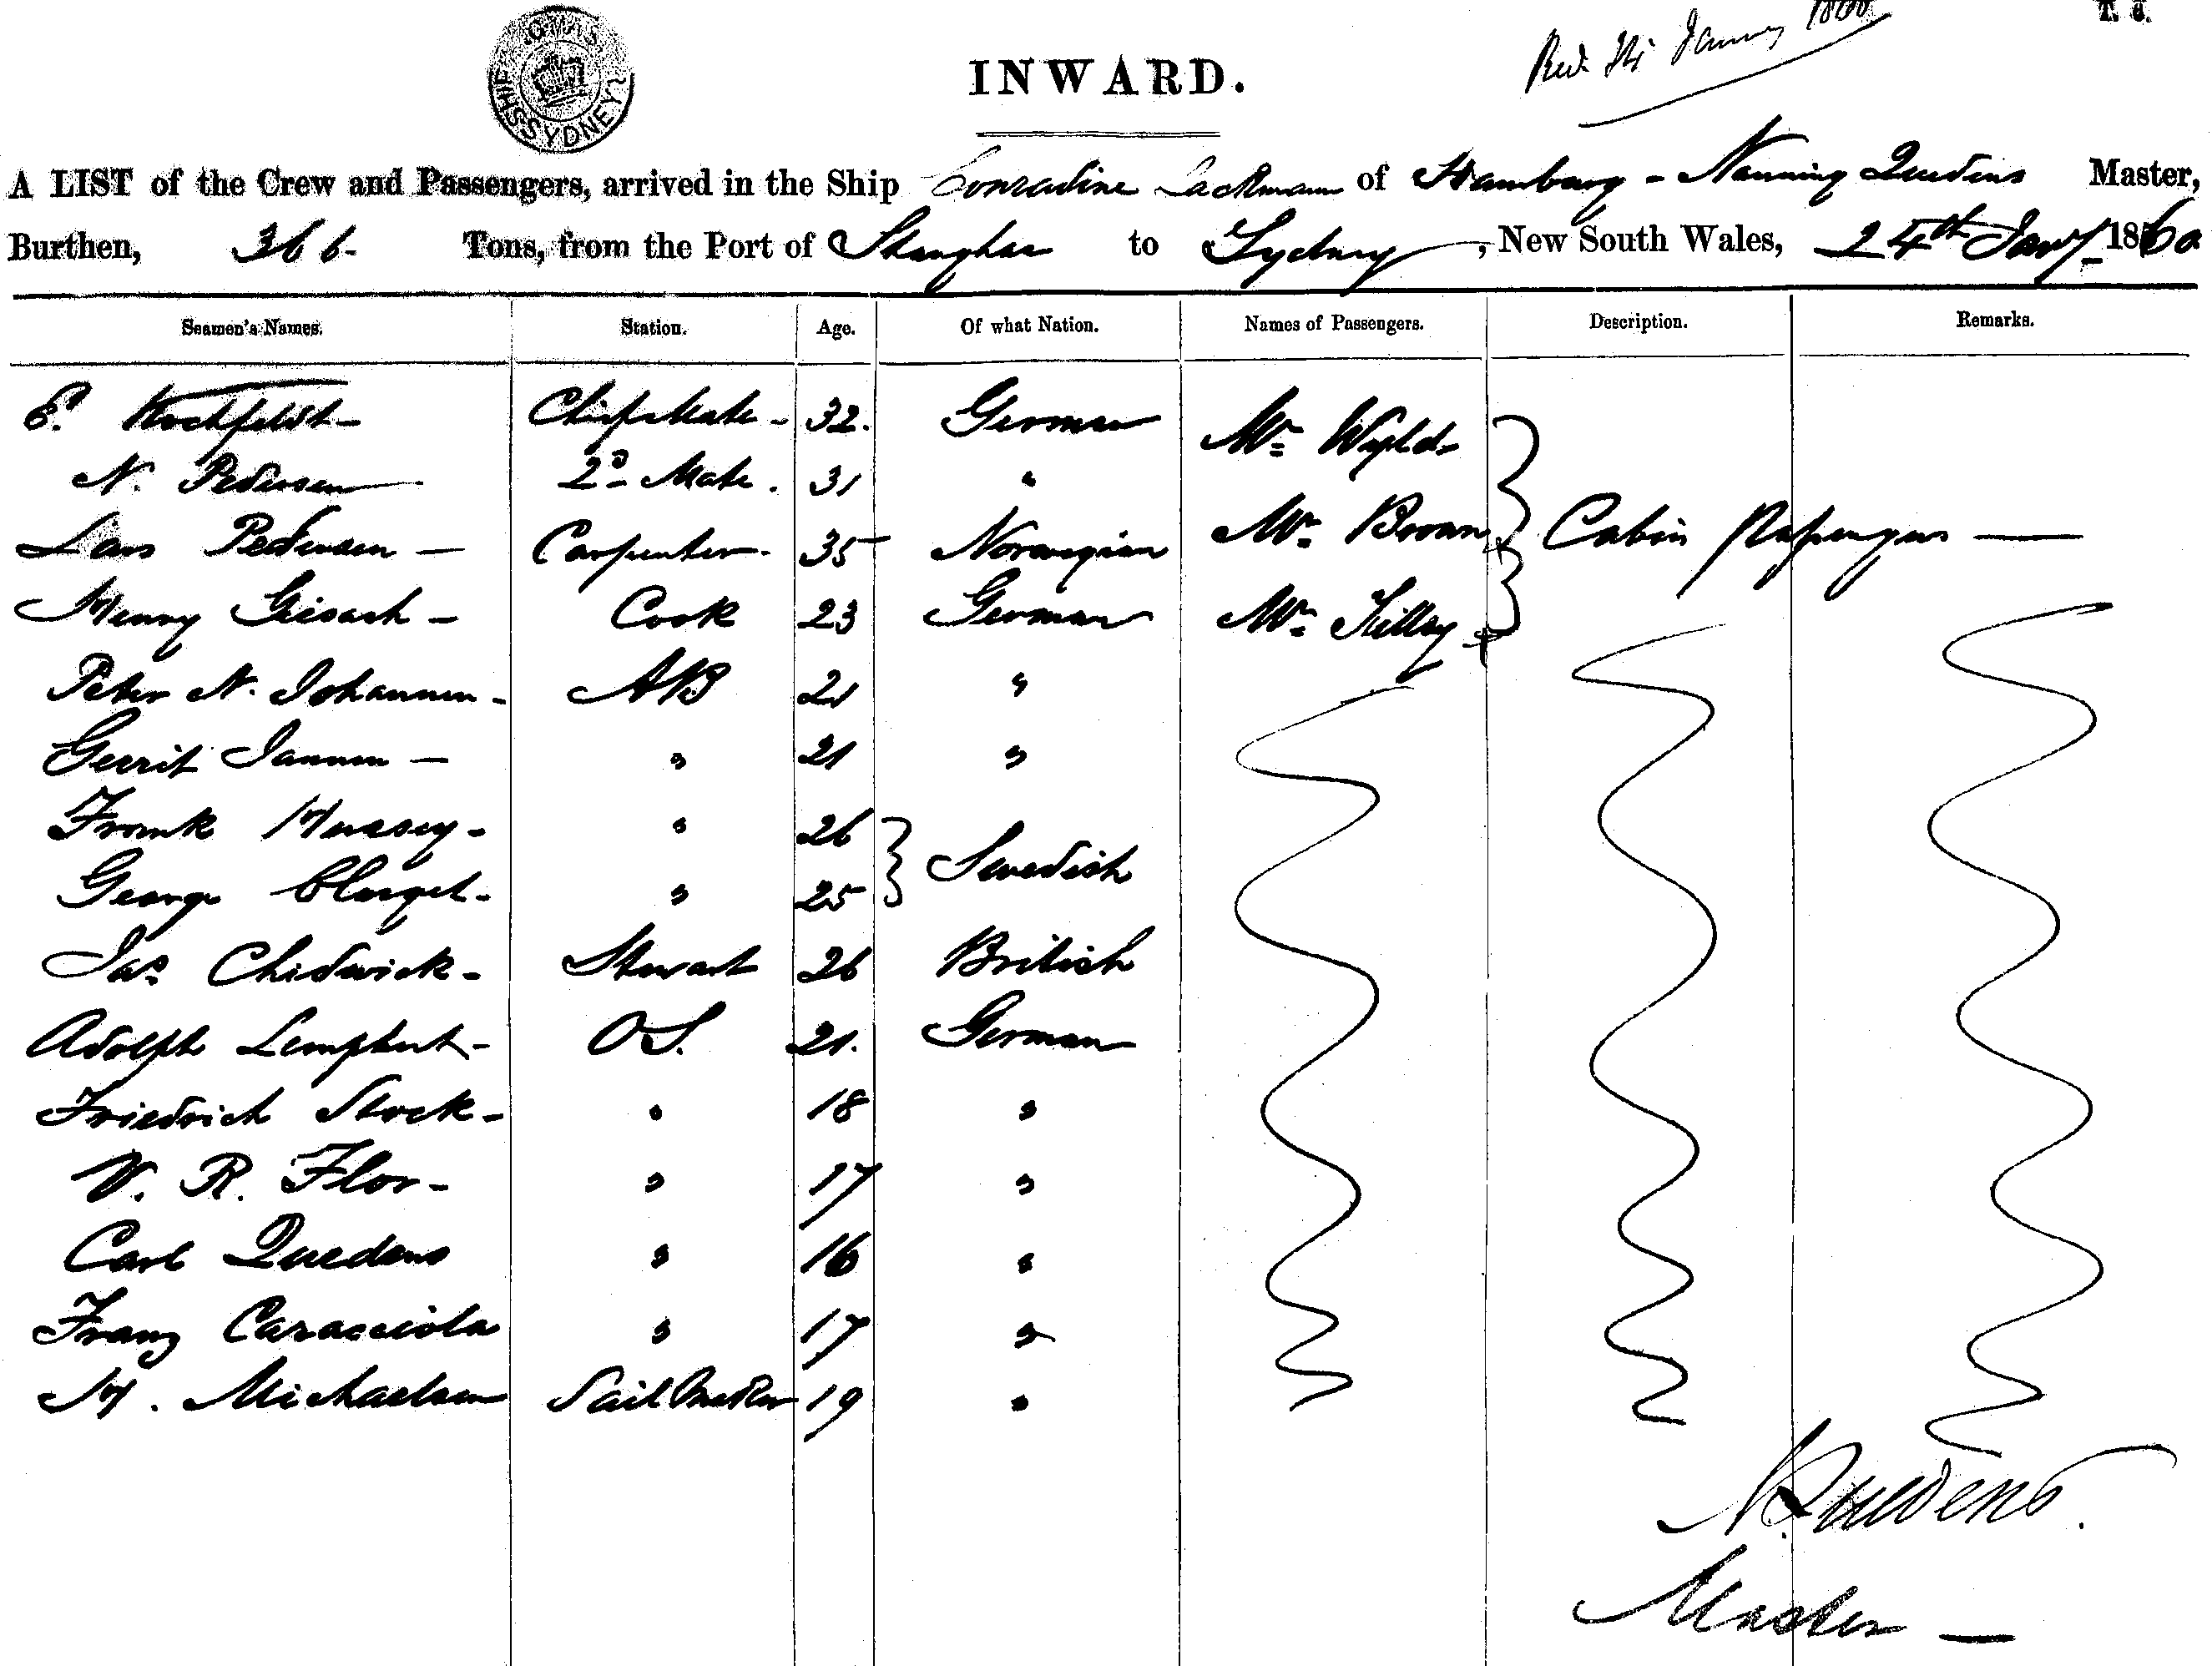 T. J.
SHIPS SYDNEY
INWARD.
Recd January 1860
A LIST of the Crew and Passengers, arrived in the Ship Conradine Lackmann of Hamburg - Nanning Quedens Master,
Burthen, 366 Tons, from the Port of Shanghai to Sydney, New South Wales, 24th Jany 1860
Seamen's Names. Station. Age. Of what Nation. Names of Passengers. Description. Remarks.
E. Hochfeldt - Chief Mate - 32. German Mr. Wyld
N. Pedersen 2d Mate. 31 "
Lars Pedersen - Carpenter. 35 Norwegian Mr. Brown Cabin Passengers —
Henry - Cook 23 German Mr.
Peter N. Johannen - AB 21 "
Gerrit Jannen - " 21 "
Frank Hussey - " 26
George - " 25 Swedish
Jas. Chidwick - Stewart 26 British
Adolph Lemphert - O S. 21. German
Friedrich Stock - " 18 "
V. R. Flor - " 17 "
Carl Quedens " 16 "
Franz Caracciola " 17 "
H. Michaelsen Sail Maker 19 "
N Quedens.
Master —